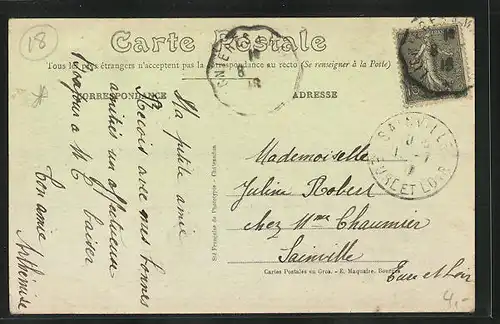 18
Carte Postale
Tous les pays étrangers n'acceptent pas la correspondance au recto (Se renseigner à la Poste)
CORRESPONDANCE
ADRESSE
Ma petite amie
Reçois avec mes bonnes
amitiés un affectueux
baiser
Bonjour à M C
Ton amie
Arthémise
Sté Française de Phototypie - Châteaudun
Mademoiselle
Juline Robert
chez Mme Chaumier
Sainville
Eure et Loir
Cartes Postales en Gros. - E. Maquaire, Bourges
SAINVILLE
EURE ET LOIR
4.-